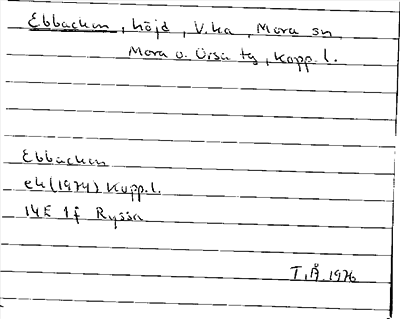 Ebbacken, höjd, V.ka, Mora sn
Mora o. Orsa tg, Kopp. l.
Ebbacken
ek (1974) Kopp. l.
14E 1f Ryssa
T.Å. 1976